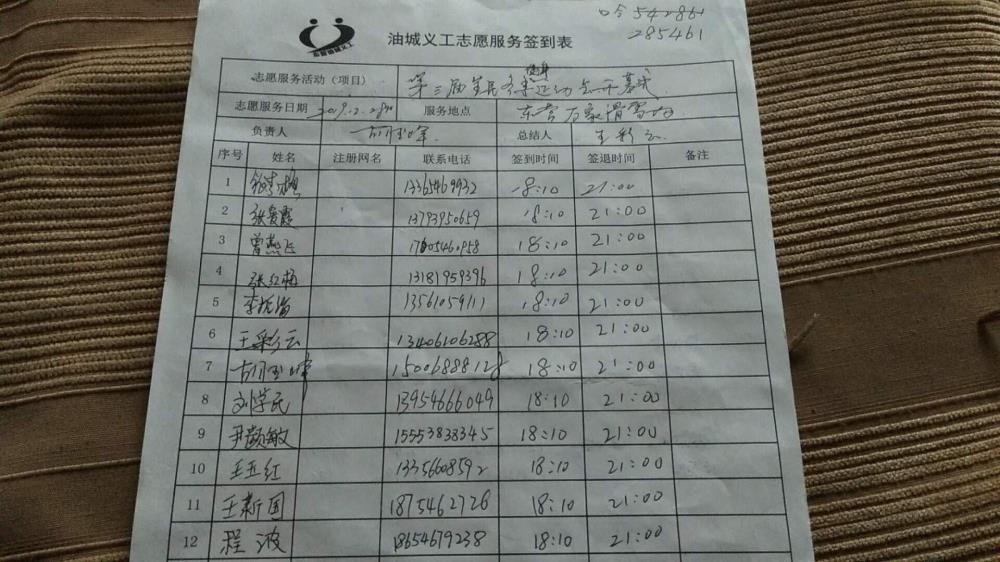 口令 542861
285461
东营油城义工
油城义工志愿服务签到表
志愿服务活动(项目) 第三届全民冬季健身运动会开幕式
志愿服务日期 2019.2.28 服务地点 东营万象滑雪场
负责人 总结人 王彩云
序号 姓名 注册网名 联系电话 签到时间 签退时间 备注
1 13365469932 18:10 21:00
2 张爱霞 13793950659 18:10 21:00
3 曾燕飞 18:10 21:00
4 张红梅 13181959396 18:10 21:00
5 13561059111 18:10 21:00
6 王彩云 13406106288 18:10 21:00
7 15006888128 18:10 21:00
8 刘学民 13954666049 18:10 21:00
9 尹颜敏 15553838345 18:10 21:00
10 王玉红 13356608592 18:10 21:00
11 王新国 1875462726 18:10 21:00
12 程波 18654679238 18:10 21:00